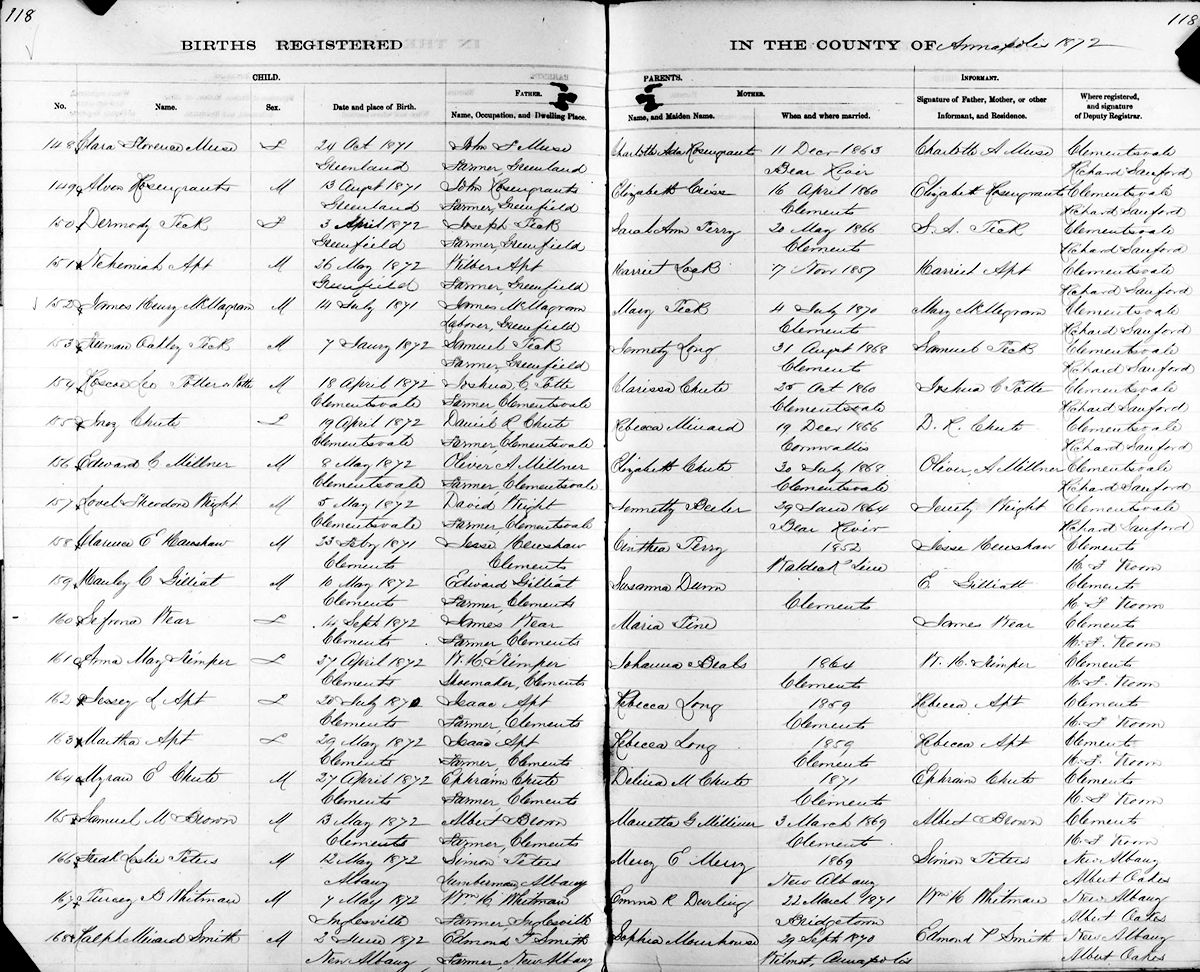 118
118
BIRTHS REGISTERED IN THE COUNTY OF Annapolis 1872
CHILD. PARENTS. INFORMANT.
FATHER. MOTHER.
No. Name. Sex. Date and place of Birth. Name, Occupation, and Dwelling Place. Name, and Maiden Name. When and where married. Signature of Father, Mother, or other Informant, and Residence. Where registered, and signature of Deputy Registrar.
148 Clara Florence Muise F 24 Oct 1871 John S Muise Charlotte Ada Rosengrants 11 Decr 1863 Charlotte A Muise Clementsvale
Greenland Farmer Greenland Bear River Richard Sanford
149 Alvon Rosengrants M 13 Augst 1871 John Rosengrants Elizabeth 16 April 1860 Elizabeth Rosengrants Clementsvale
Greenland Farmer, Greenfield Clements Richard Sanford
150 Dermody Feck F 3 April 1872 Joseph Feck Sarah Ann Terry 20 May 1866 S. A. Feck Clementsvale
Greenfield Farmer, Greenfield Clements Richard Sanford
151 Nehemiah Apt M 26 May 1872 Wilber Apt Harriet 7 Novr 1857 Harriet Apt Clementsvale
Greenfield Farmer, Greenfield Richard Sanford
152 James Henry McMagram M 14 July 1871 James McMagram Mary Feck 4 July 1870 Mary McMegram Clementsvale
Laborer, Greenfield Clements Richard Sanford
153 Freeman Oakley Feck M 7 Jany 1872 Samuel Feck Jennety Long 31 Augst 1868 Samuel Feck Clementsvale
Farmer, Greenfield Clements Richard Sanford
154 Roscoe Leo Potter or Potte M 18 April 1872 Joshua C Potte Clarissa Chute 25 Oct 1860 Joshua C Potte Clementsvale
Clementsvale Farmer, Clementsvale Clementsvale Richard Sanford
155 Inez Chute F 19 April 1872 Daniel R Chute Rebecca Minard 19 Decr 1866 D. R. Chute Clementsvale
Clementsvale Farmer, Clementsvale Cornwallis Richard Sanford
156 Edward C Millner M 8 May 1872 Oliver A Millner Elizabeth Chute 20 July 1868 Oliver A Millner Clementsvale
Clementsvale Farmer, Clementsvale Clementsvale Richard Sanford
157 Lovel Theodore Wright M 5 May 1872 David Wright Jennetty Beeler 29 June 1864 Jenety Wright Clementsvale
Clementsvale Farmer, Clementsvale Bear River Richard Sanford
158 Clarence E Henshaw M 23 Feby 1871 Jesse Henshaw Cinthea Perry 1852 Jesse Henshaw Clements
Clements Clements Waldeck Line H. F Vroom
159 Hanley C Gilliat M 10 May 1872 Edward Gilliat Susanna Dunn E Gilliatt Clements
Clements Farmer, Clements Clements H. F Vroom
160 Sefrona Wear F 14 Sept 1872 James Wear Maria Pine James Wear Clements
Clements Farmer, Clements H. F. Vroom
161 Anna May Kemper F 27 April 1872 W. H. Kemper Johanna Beals 1864 W. H. Kimper Clements
Clements Shoemaker, Clements Clements H. F. Vroom
162 Jessey L Apt F 20 July 1870 Isaac Apt Rebecca Long 1859 Rebecca Apt Clements
Clements Farmer, Clements Clements H. F. Vroom
163 Martha Apt F 29 May 1872 Isaac Apt Rebecca Long 1859 Rebecca Apt Clements
Clements Farmer, Clements Clements H. F Vroom
164 Myran E Chute M 27 April 1872 Ephraim Chute Delicia M Chute 1871 Ephraim Chute Clements
Clements Farmer, Clements Clements H. F Vroom
165 Samuel M Brown M 13 May 1872 Albert Brown Marietta G Milliner 3 March 1869 Albert Brown Clements
Clements Farmer, Clements Clements H. F Vroom
166 Fredk Leslie Peters M 12 May 1872 Simon Peters Mercy E Merry 1869 Simon Peters New Albany
Albany Lumberman, Albany New Albany Albert Oakes
167 Pursey B Whitman M 7 May 1872 Wm H Whitman Emma R Durling 22 March 1871 Wm H Whitman New Albany
Inglesville Farmer, Inglesville Bridgetown Albert Oakes
168 Ralph Minard Smith M 2 June 1872 Edmond T Smith Sophia Morehouse 29 Sept 1870 Edmond T Smith New Albany
New Albany Farmer, New Albany Wilmot, Annapolis Albert Oakes